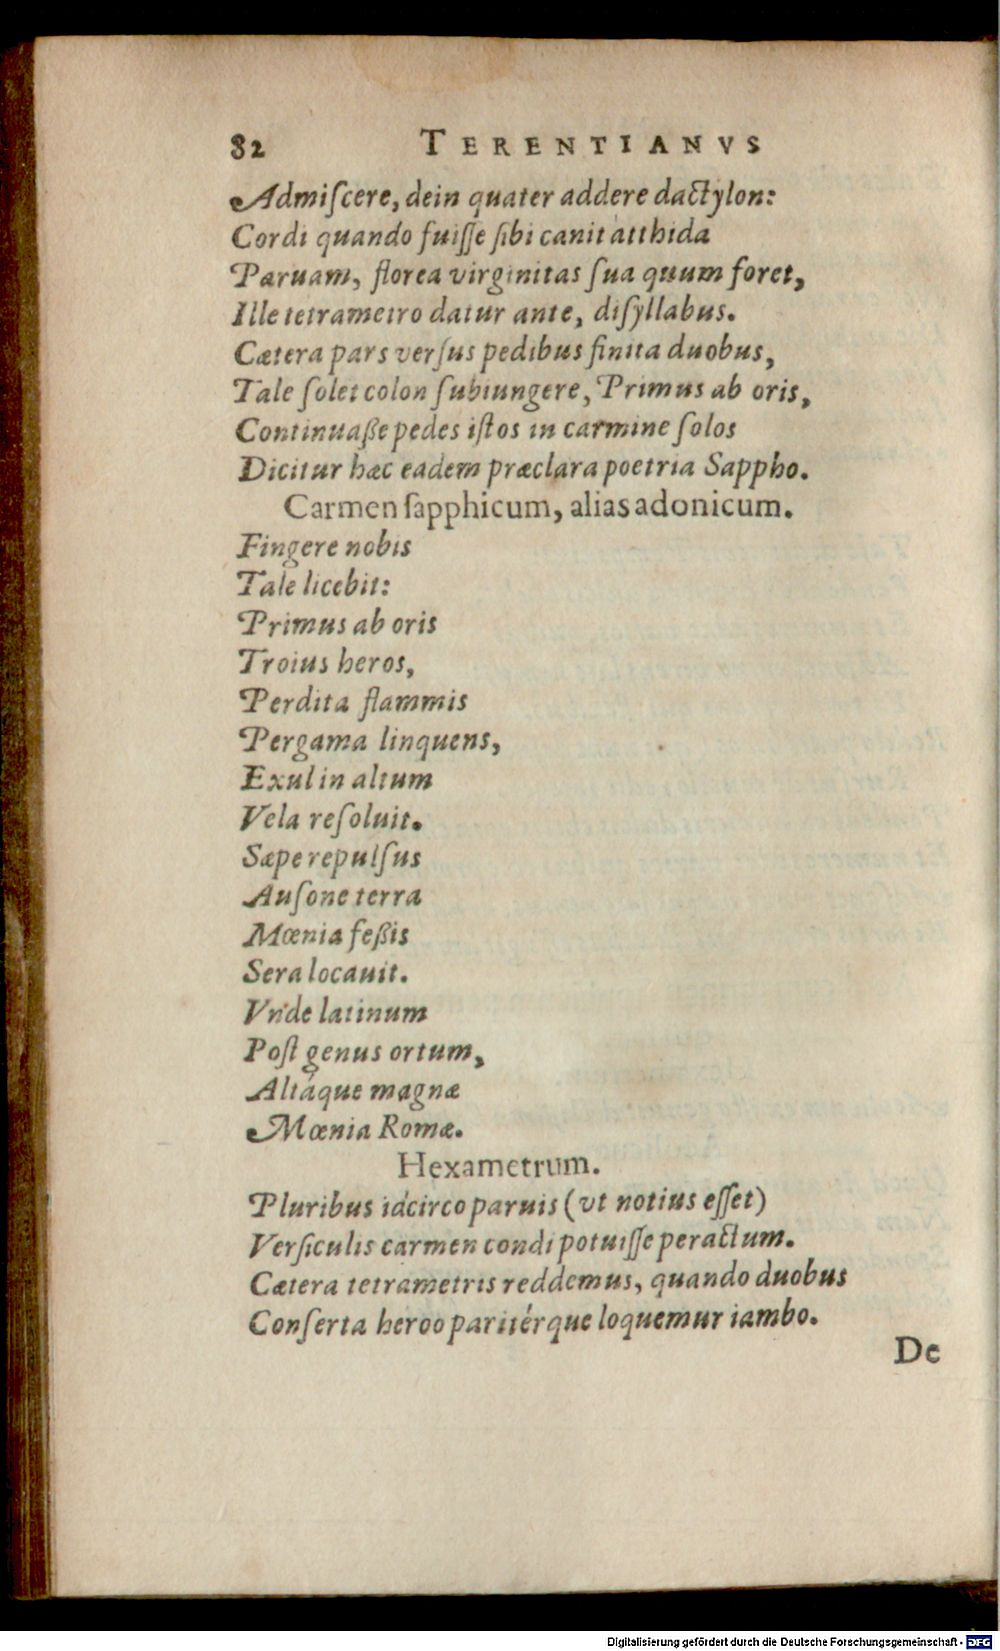 82 TERENTIANVS
Admiſcere, dein quater addere dactylon:
Cordi quando fuiſſe ſibi canit atthida
Paruam, florea virginitas ſua quum foret,
Ille tetrametro datur ante, diſyllabus.
Cætera pars verſus pedibus finita duobus,
Tale ſolet colon ſubiungere, Primus ab oris,
Continuaße pedes iſtos in carmine ſolos
Dicitur hæc eadem præclara poetria Sappho.
Carmen ſapphicum, alias adonicum.
Fingere nobis
Tale licebit:
Primus ab oris
Troius heros,
Perdita flammis
Pergama linquens,
Exul in altum
Vela reſoluit.
Sæpe repulſus
Auſone terra
Mœnia feßis
Sera locauit.
Vnde latinum
Poſt genus ortum,
Altáque magnæ
Mœnia Romæ.
Hexametrum.
Pluribus idcirco paruis (vt notius eſſet)
Verſiculis carmen condi potuiſſe peractum.
Cætera tetrametris reddemus, quando duobus
Conſerta heroo paritérque loquemur iambo.
De
Digitalisierung gefördert durch die Deutsche Forschungsgemeinschaft - DFG